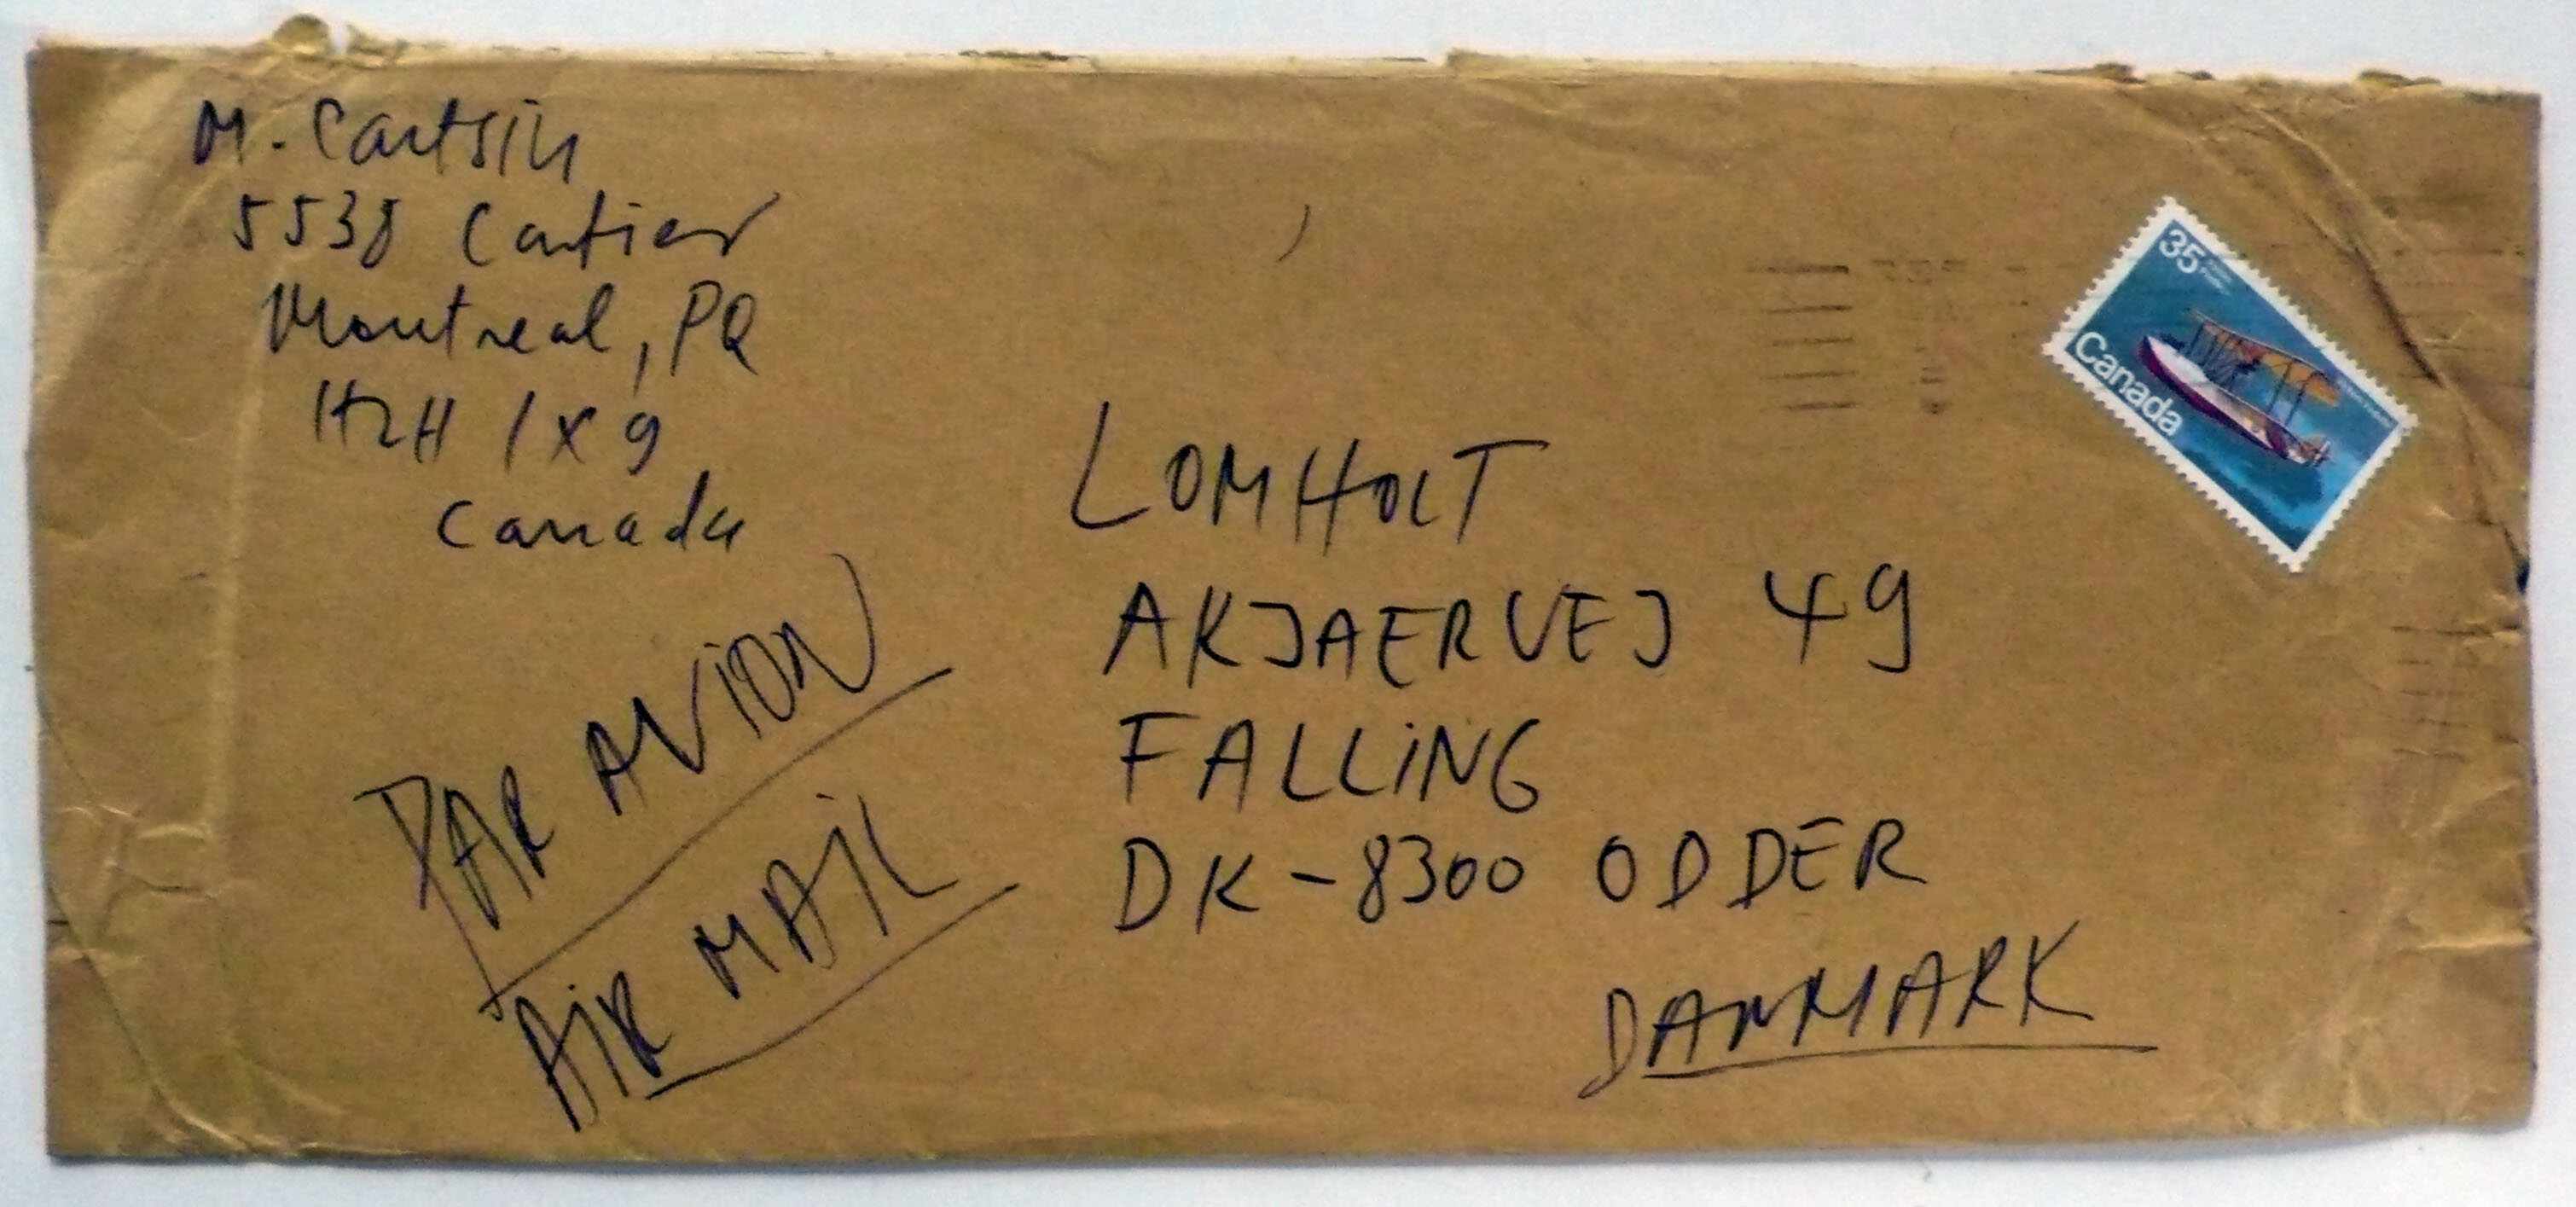 M. Cantsin
5538 Cartier
Montreal, PQ
H2H 1X9
Canada
35
Canada
LOMHOLT
AKJAERVEJ 49
FALLING
DK-8300 ODDER
DANMARK
PAR AVION
AIR MAIL